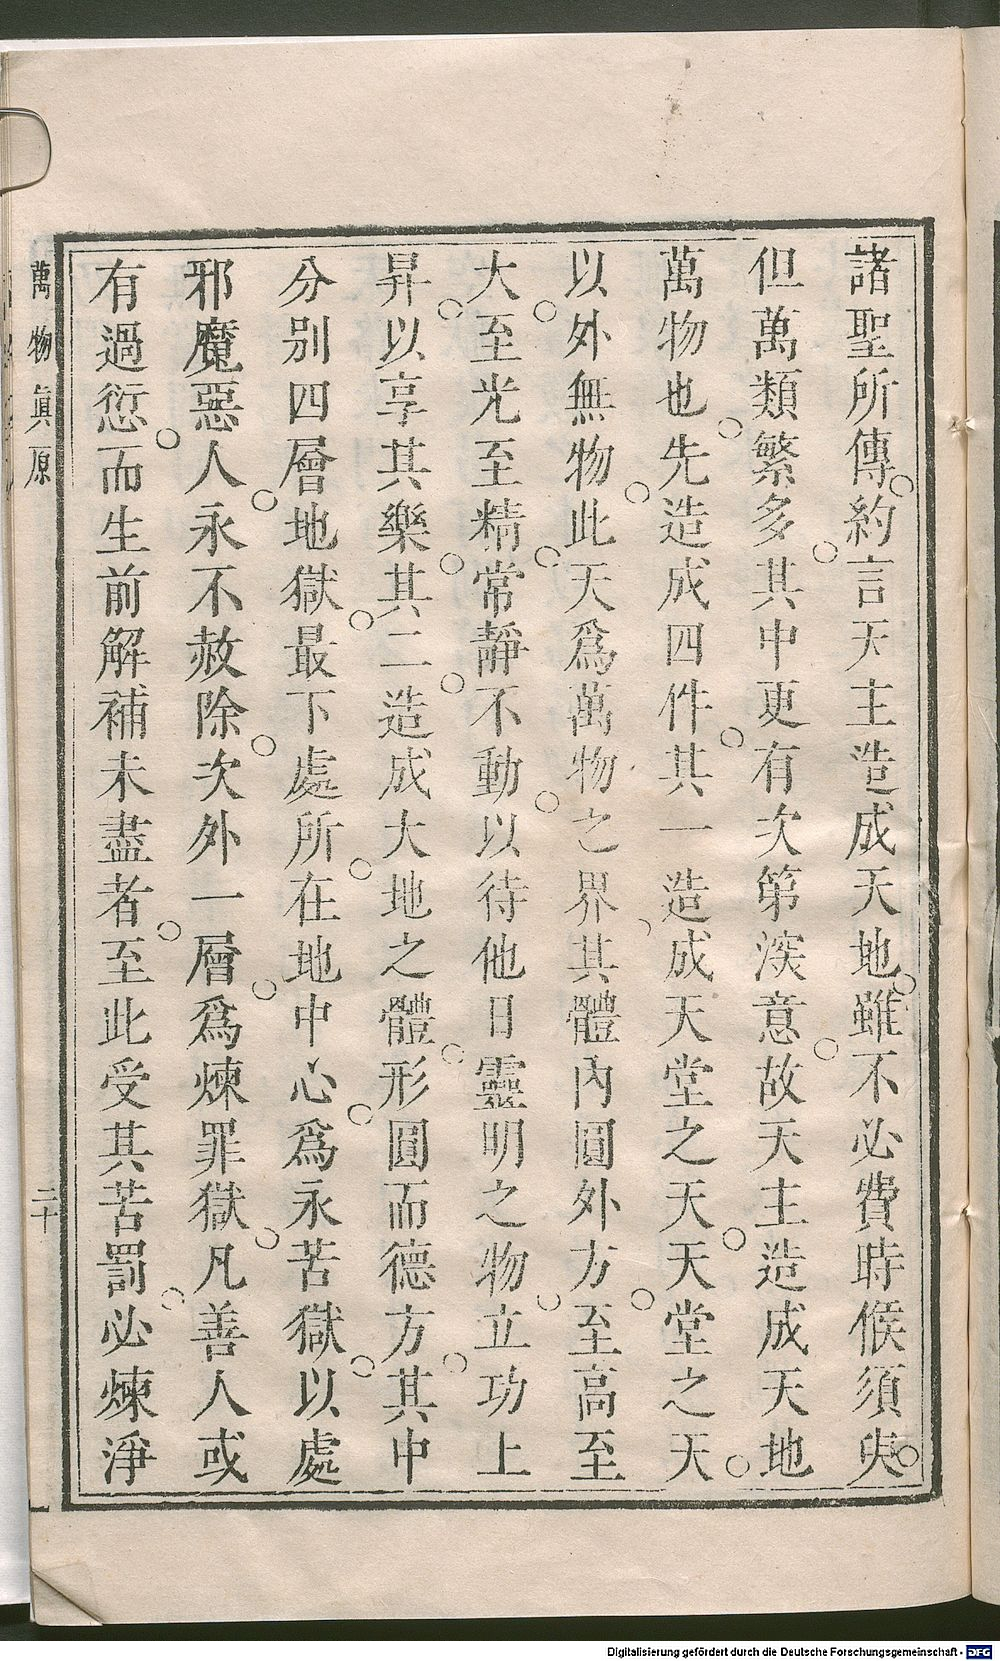 諸聖所傳約言天主造成天地雖不必費時候須臾
但萬類繁多其中更有次第深意故天主造成天地
萬物也先造成四件其一造成天堂之天天堂之天
以外無物此天爲萬物之界其體內圓外方至高至
大至光至精常靜不動以待他日靈明之物立功上
昇以享其樂其二造成大地之體形圓而德方其中
分別四層地獄最下處所在地中心爲永苦獄以處
邪魔惡人永不赦除次外一層爲煉罪獄凡善人或
有過愆而生前解補未盡者至此受其苦罰必煉淨
萬物眞原
二十
Digitalisierung gefördert durch die Deutsche Forschungsgemeinschaft - DFG